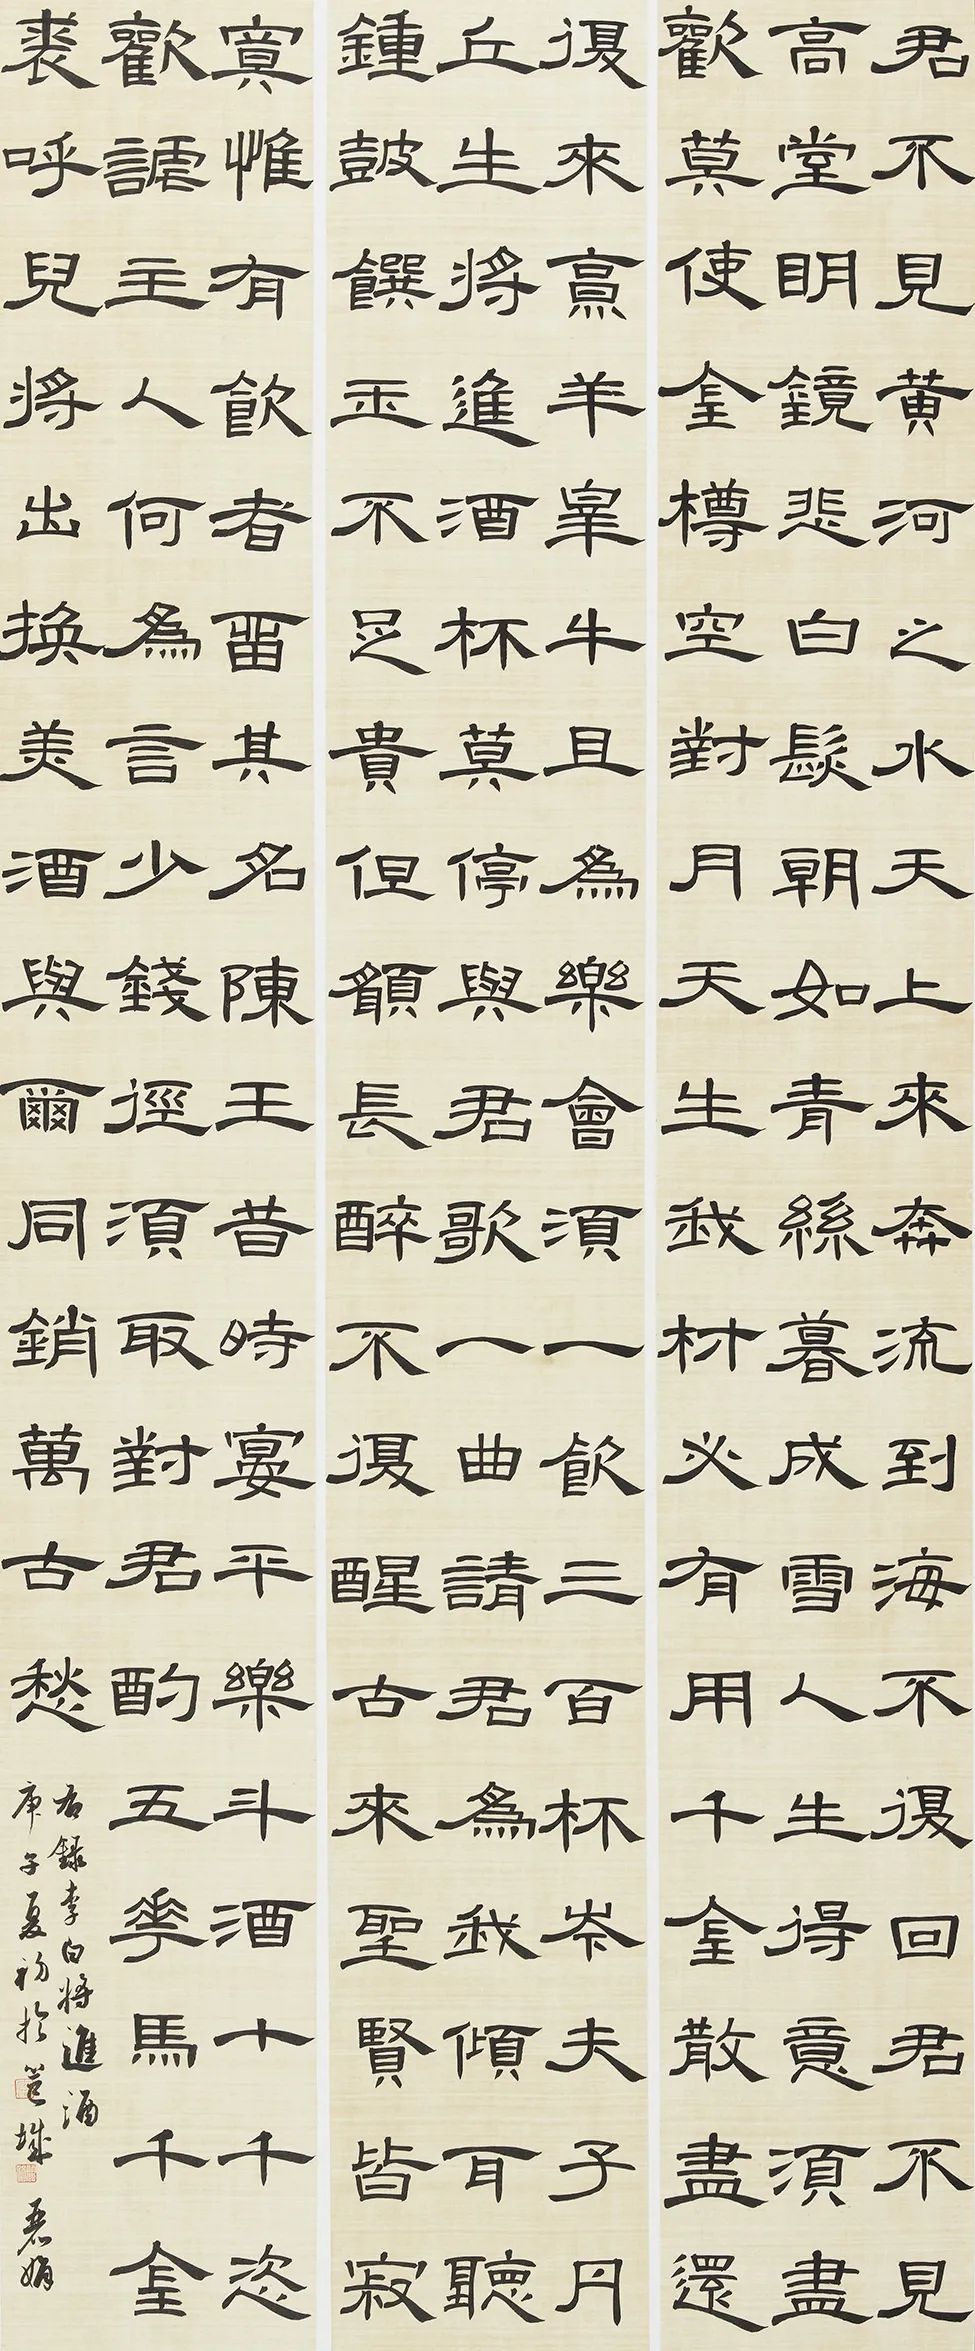 君不見黄河之水天上來奔流到海不復回君不見
高堂明鏡悲白髮朝如青絲暮成雪人生得意須盡
歡莫使金樽空對月天生我材必有用千金散盡還
復來烹羊宰牛且為樂會須一飲三百杯岑夫子丹
丘生將進酒杯莫停與君歌一曲請君為我傾耳聽
鍾鼓饌玉不足貴但願長醉不復醒古來聖賢皆寂
寞惟有飲者留其名陳王昔時宴平樂斗酒十千恣
歡謔主人何為言少錢徑須取對君酌五花馬千金
裘呼兒將出換美酒與爾同銷萬古愁
右錄李白將進酒
庚子夏初於邕城 娟